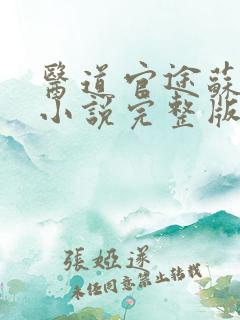 醫道官途蘇
小說完整版
張婭遂
未經同意禁止轉載